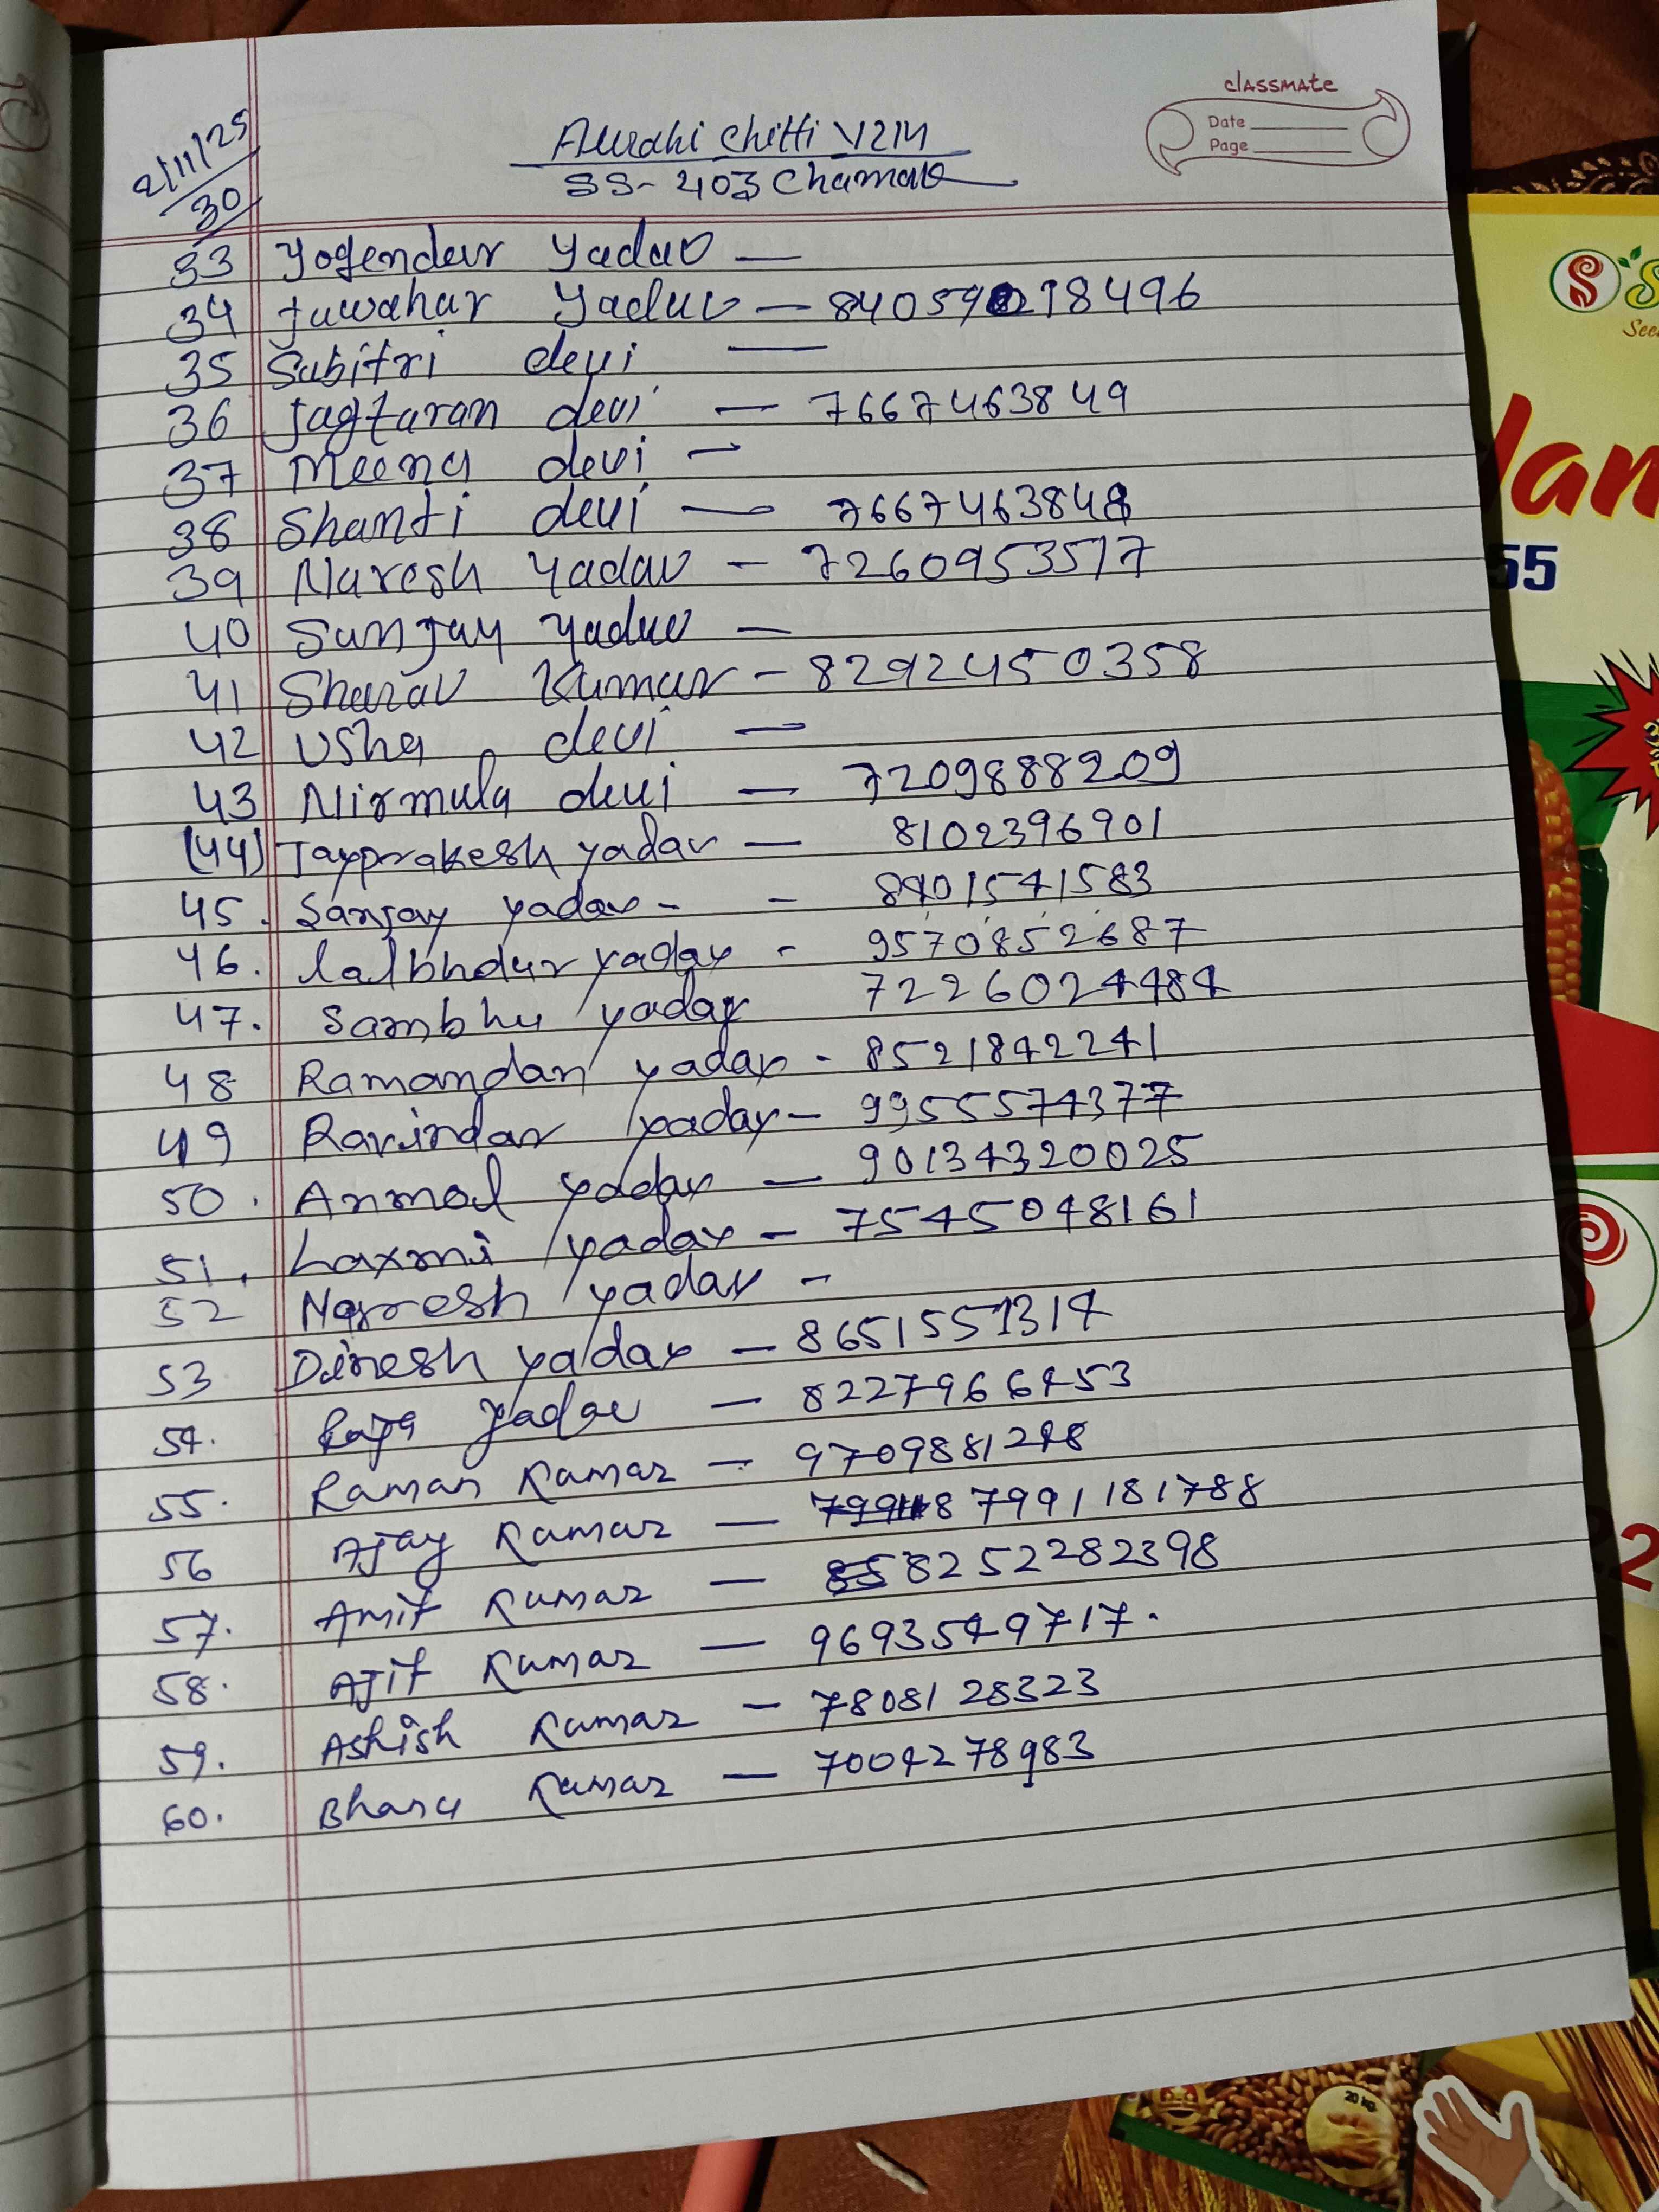 classmate
Date
Page
2/11/25
30
Aurahi chitti V214
SS- 403 Chamak
33 Yogendar Yadav —
34 Juwahar Yaduv — 8405918496
35 Subitri devi —
36 Jagtaran devi — 7667463849
37 Meena devi —
38 Shanti devi — 7667463848
39 Naresh Yadav — 7260953517
40 Sunjay Yaduv —
41 Sharav Kumar - 8292450358
42 Usha devi —
43 Nirmula devi — 7209888209
(44) Jayprakesh yadav — 8102396901
45. Sanjay yadav - - 8401541583
46. lalbhdur yadav - 9570852687
47. Sambhu yadav 7226024484
48 Ramandan yadav - 8521842241
49 Ravindar yadav - 9955574377
50. Anmol yadav — 90134320025
51. Laxmi yadav - 7545048161
52 Naresh yadav -
53 Dinesh yadav — 8651551314
54. Raja Yadav — 8227966453
55. Raman Kumar — 9709881248
56 Ajay Kumar — 7991181788
57. Amit Kumar — 8252282398
58. Ajit Kumar — 9693549717.
59. Ashish Kumar — 7808128323
60. Bhanu Kumar — 7004278983
55
20 kg.